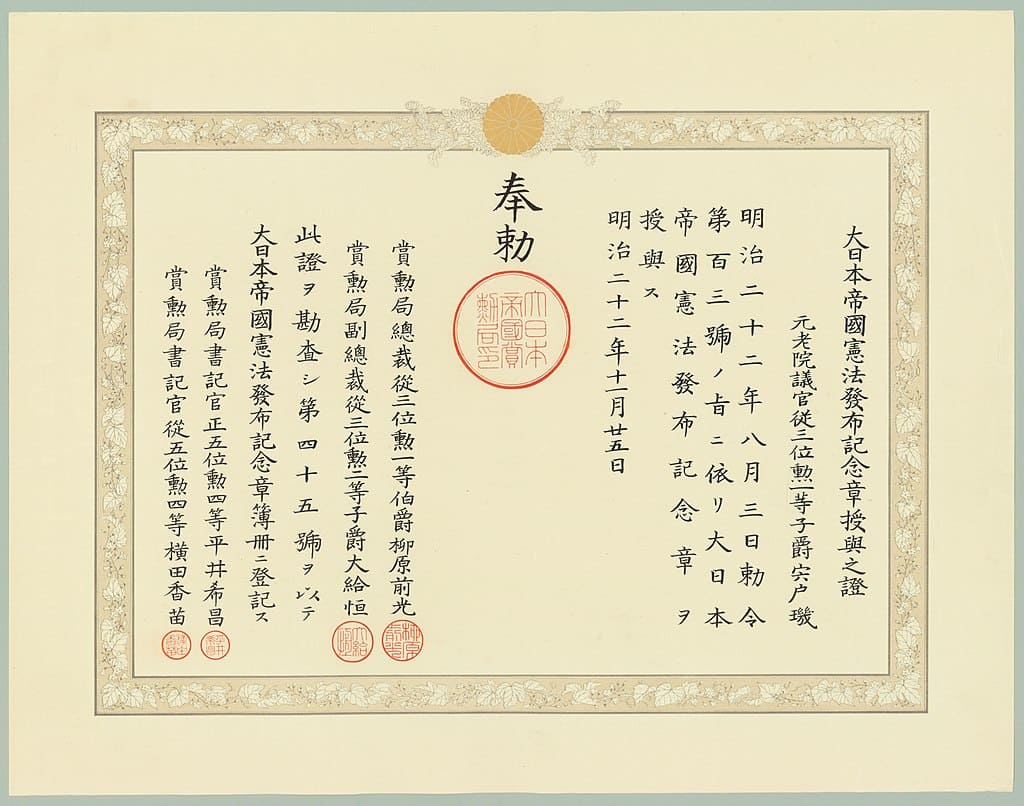 大日本帝國憲法發布記念章授與之證
元老院議官從三位勲一等子爵宍户璣
明治二十二年八月三日勅令
第百三號ノ旨ニ依リ大日本
帝國憲法發布記念章ヲ
授與ス
明治二十二年十一月廿五日
奉勅
大日本
帝國賞
勲局印
賞勲局總裁從三位勲一等伯爵柳原前光
賞勲局副總裁從三位勲二等子爵大給恒
此證ヲ勘査シ第四十五號ヲ以テ
大日本帝國憲法發布記念章簿冊ニ登記ス
賞勲局書記官正五位勲四等平井希昌
賞勲局書記官從五位勲四等横田香苗